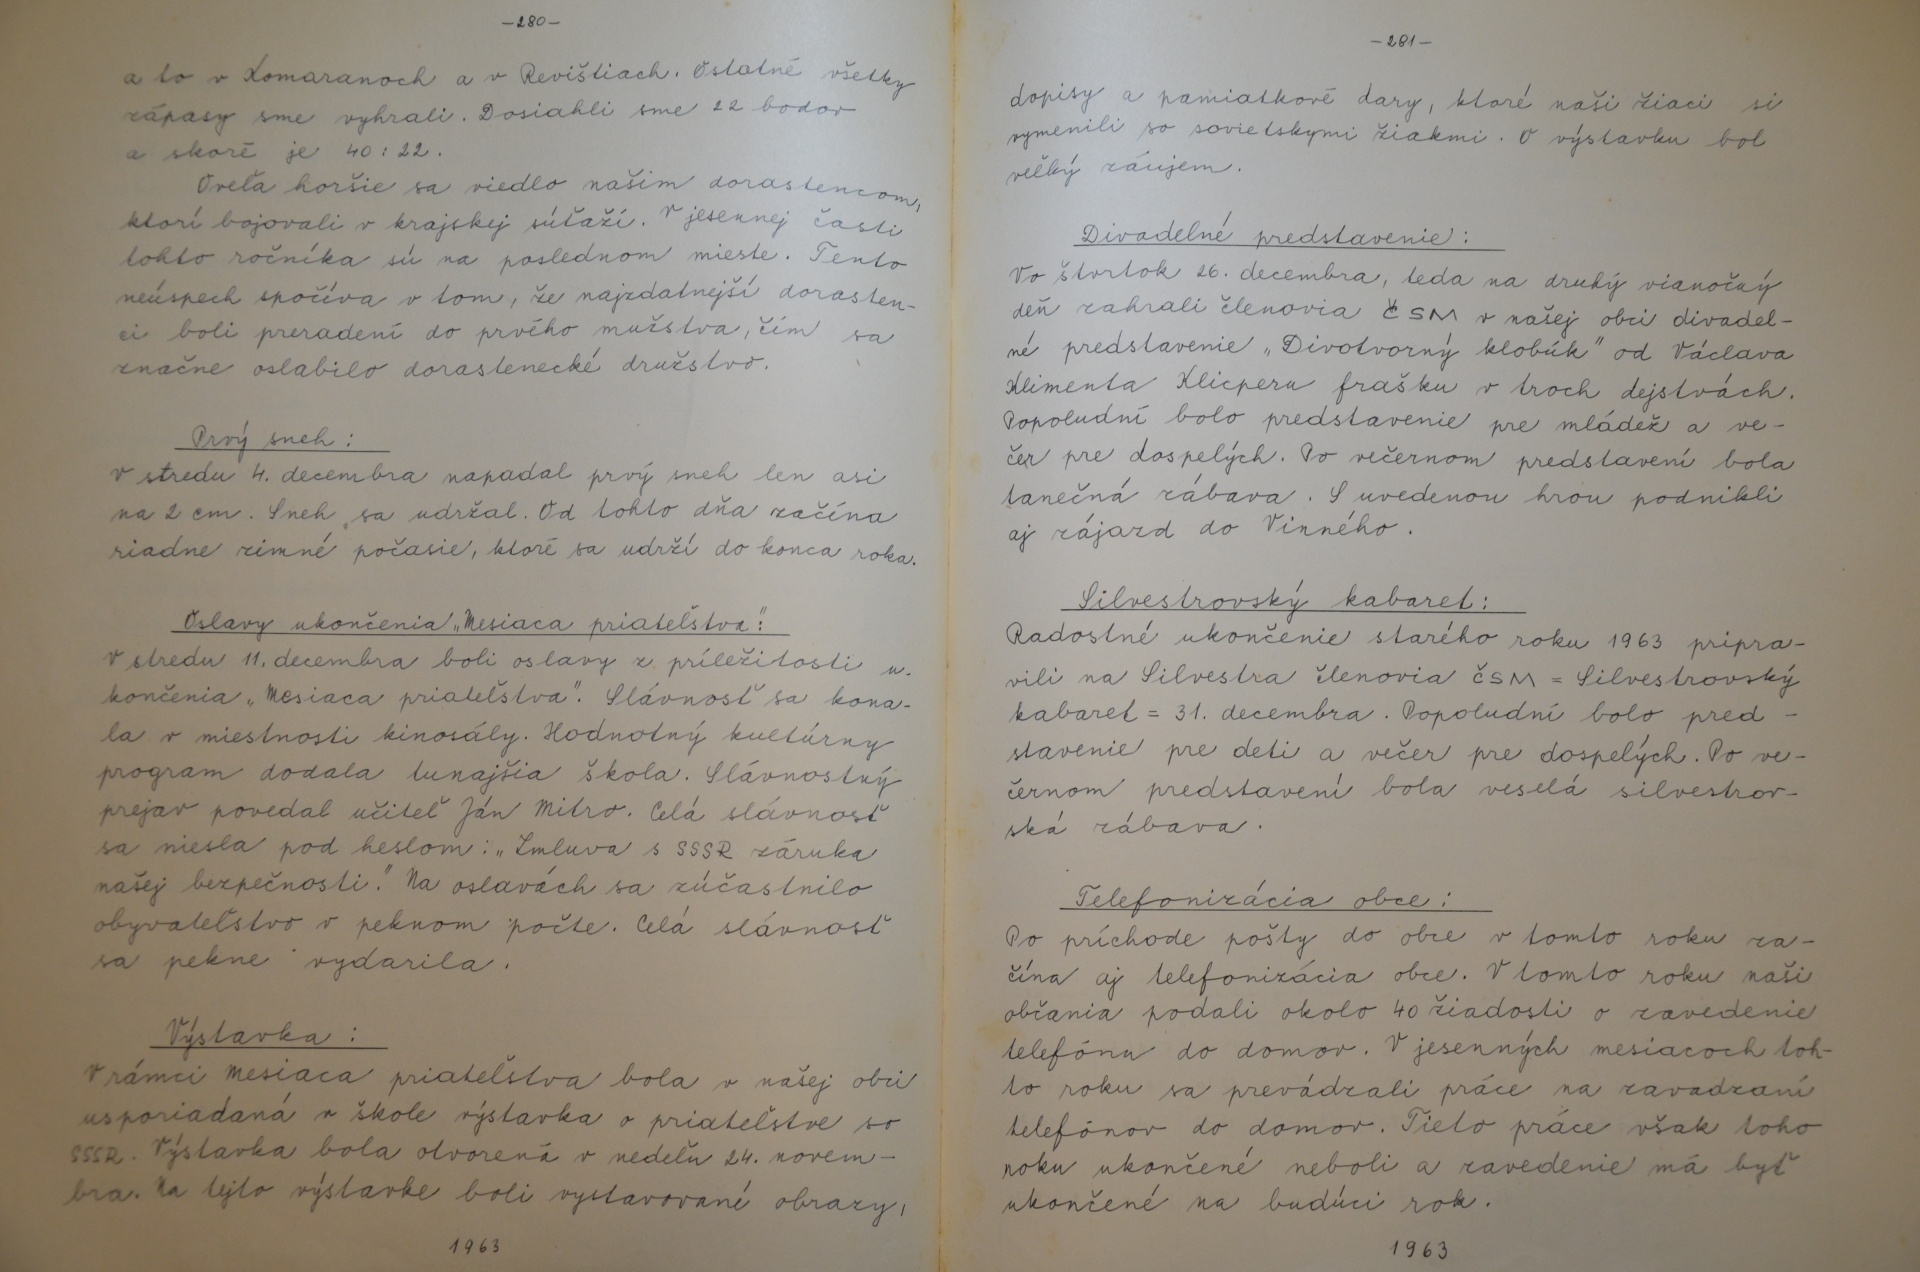 -280-
a to v Komaranoch a v Revištiach. Ostatné všetky
zápasy sme vyhrali. Dosiahli sme 22 bodov
a skoré je 40:22.
Oveľa horšie sa viedlo našim dorastencom,
ktorí bojovali v krajskej súťaží. V jesennej časti
tohto ročníka sú na poslednom mieste. Tento
neúspech spočíva v tom, že najzdatnejší dorasten-
ci boli preradení do prvého mužstva, čím sa
značne oslabilo dorastenecké družstvo.
Prvý sneh:
V stredu 4. decembra napadal prvý sneh len asi
na 2 cm. Sneh sa udržal. Od tohto dňa začína
riadne zimné počasie, ktoré sa udrží do konca roka.
Oslavy ukončenia „Mesiaca priateľstva":
V stredu 11. decembra boli oslavy z príležitosti u-
končenia „Mesiaca priateľstva". Slávnosť sa kona-
la v miestnosti kinosály. Hodnotný kultúrny
program dodala tunajšia škola. Slávnostný
prejav povedal učiteľ Ján Mitro. Celá slávnosť
sa niesla pod heslom: „Zmluva s SSSR záruka
našej bezpečnosti." Na oslavách sa zúčastnilo
obyvateľstvo v peknom počte. Celá slávnosť
sa pekne vydarila.
Výstavka:
V rámci Mesiaca priateľstva bola v našej obci
usporiadaná v škole výstavka o priateľstve so
SSSR. Výstavka bola otvorená v nedeľu 24. novem-
bra. Na tejto výstavke boli vystavované obrazy,
1963
-281-
dopisy a pamiatkové dary, ktoré naši žiaci si
vymenili so sovietskymi žiakmi. O výstavku bol
veľký záujem.
Divadelné predstavenie:
Vo štvrtok 26. decembra, teda na druhý vianočný
deň zahrali členovia ČSM v našej obci divadel-
né predstavenie „Divotvorný klobúk" od Václava
Klimenta Klicperu frašku v troch dejstvách.
Popoludní bolo predstavenie pre mládež a ve-
čer pre dospelých. Po večernom predstavení bola
tanečná zábava. S uvedenou hrou podnikli
aj zájazd do Vinného.
Silvestrovský kabaret:
Radostné ukončenie starého roku 1963 pripra-
vili na Silvestra členovia ČSM = Silvestrovský
kabaret = 31. decembra. Popoludní bolo pred-
stavenie pre deti a večer pre dospelých. Po ve-
černom predstavení bola veselá silvestrov-
ská zábava.
Telefonizácia obce:
Po príchode pošty do obce v tomto roku za-
čína aj telefonizácia obce. V tomto roku naši
občania podali okolo 40 žiadosti o zavedenie
telefónu do domov. V jesenných mesiacoch toh-
to roku sa prevádzali práce na zavadzaní
telefónov do domov. Tieto práce však toho
roku ukončené neboli a zavedenie má byť
ukončené na budúci rok.
1963